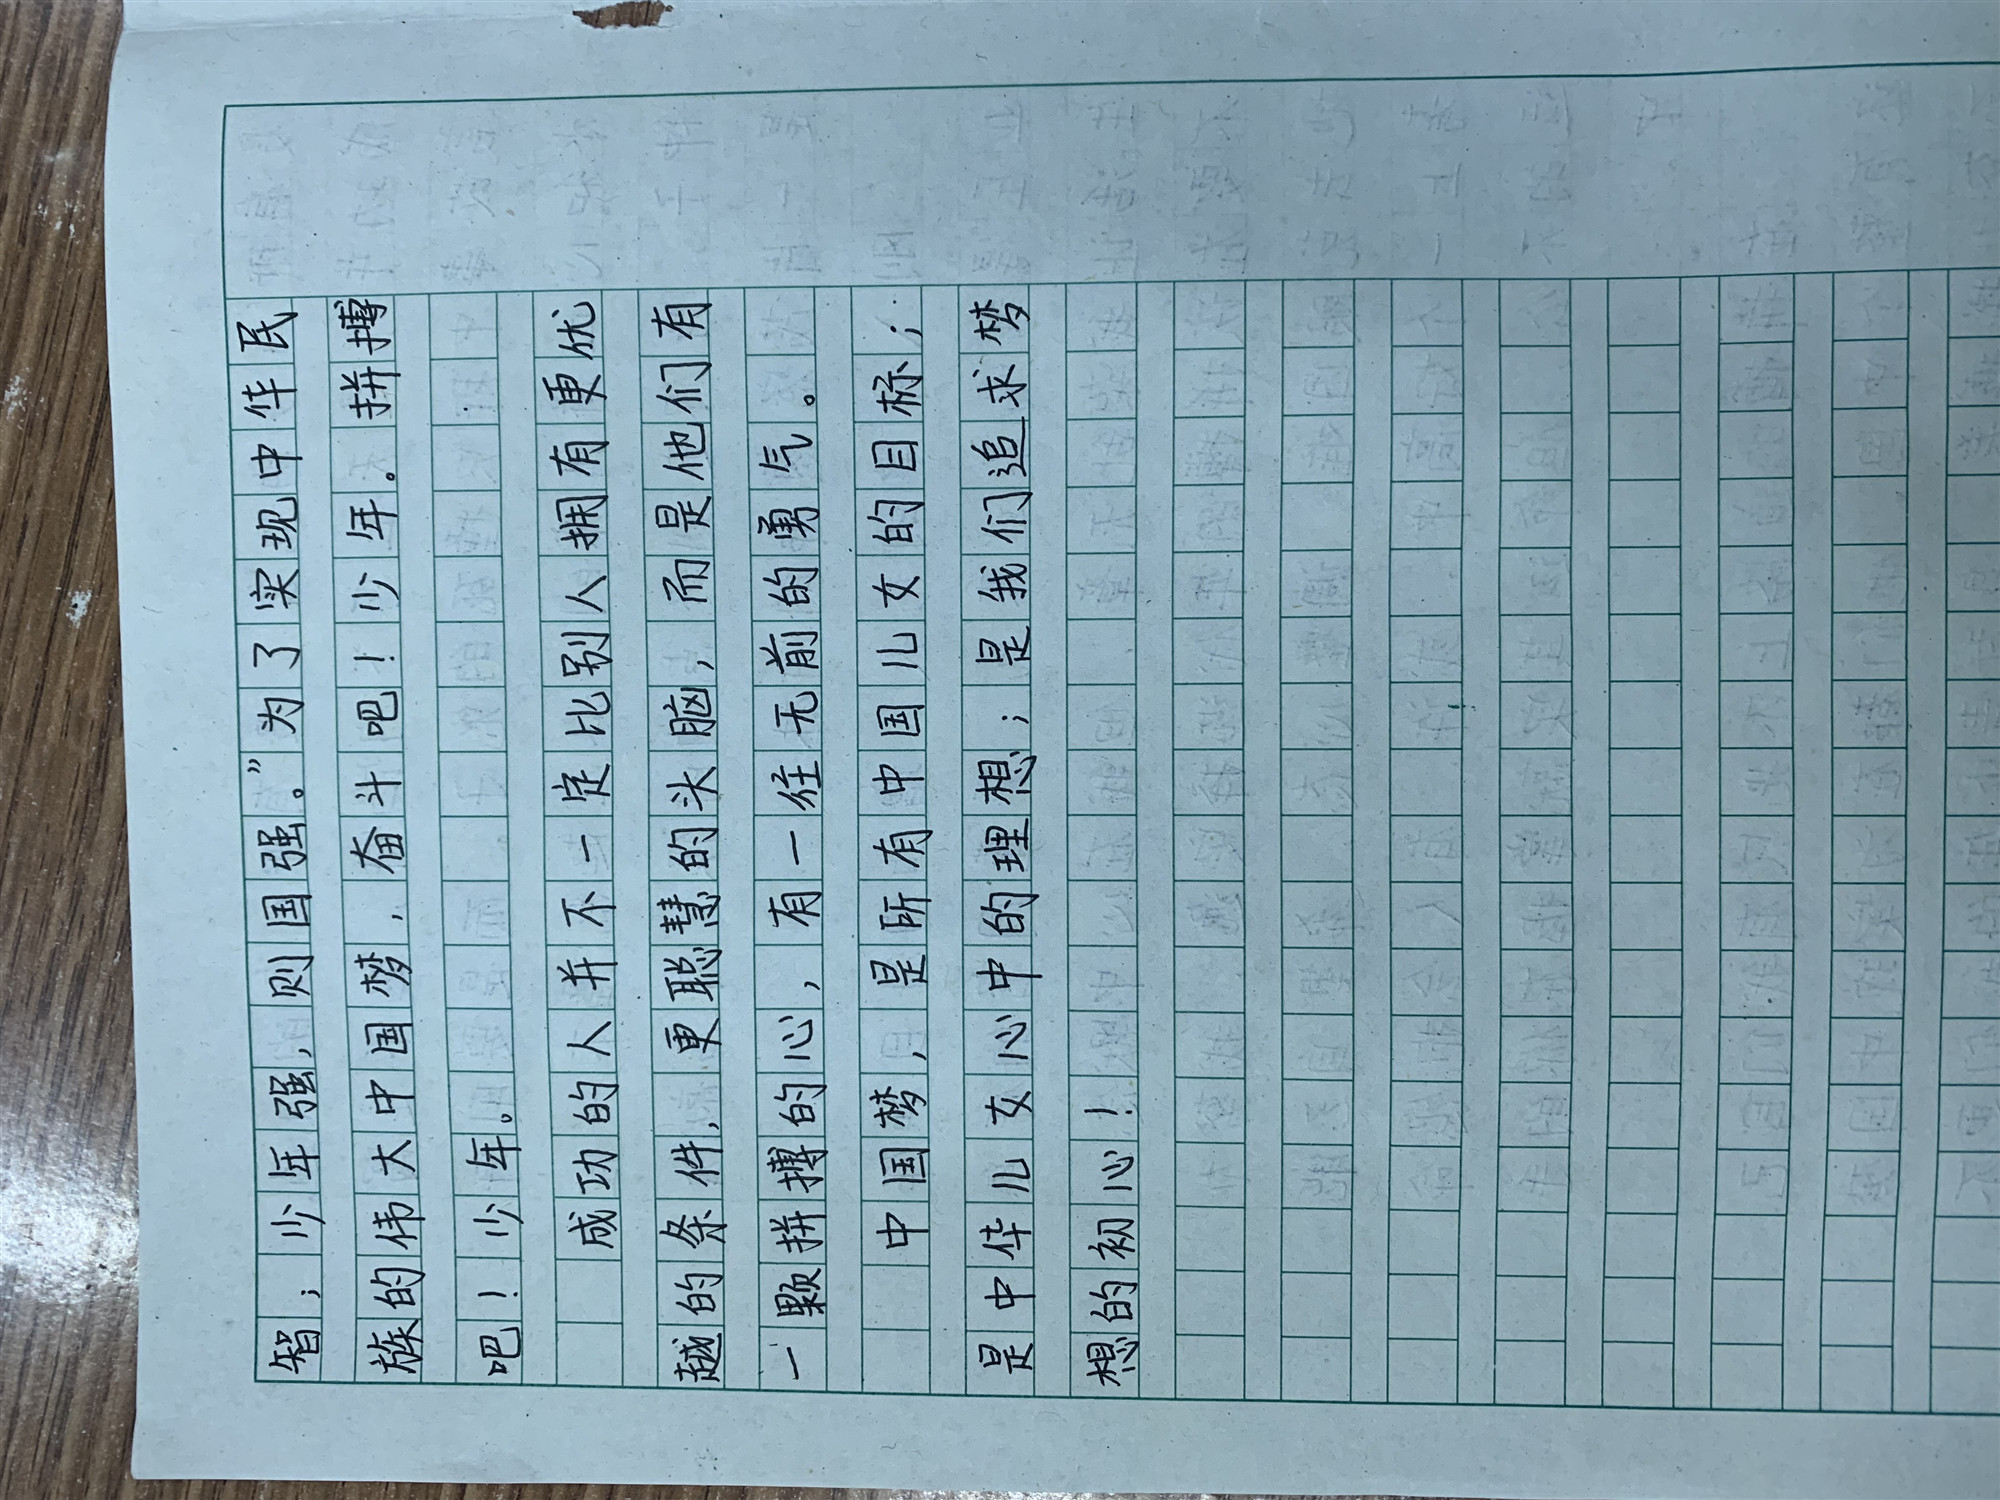 智；少年强，则国强。”为了实现中华民
族的伟大中国梦，奋斗吧！少年。拼搏
吧！少年。
成功的人并不一定比别人拥有更优
越的条件，更聪慧的头脑，而是他们有
一颗拼搏的心，有一往无前的勇气。
中国梦，是所有中国儿女的目标；
是中华儿女心中的理想；是我们追求梦
想的初心！